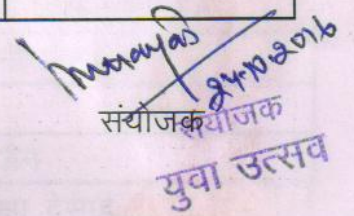 24-10-2016
संयोजक
संयोजक
युवा उत्सव